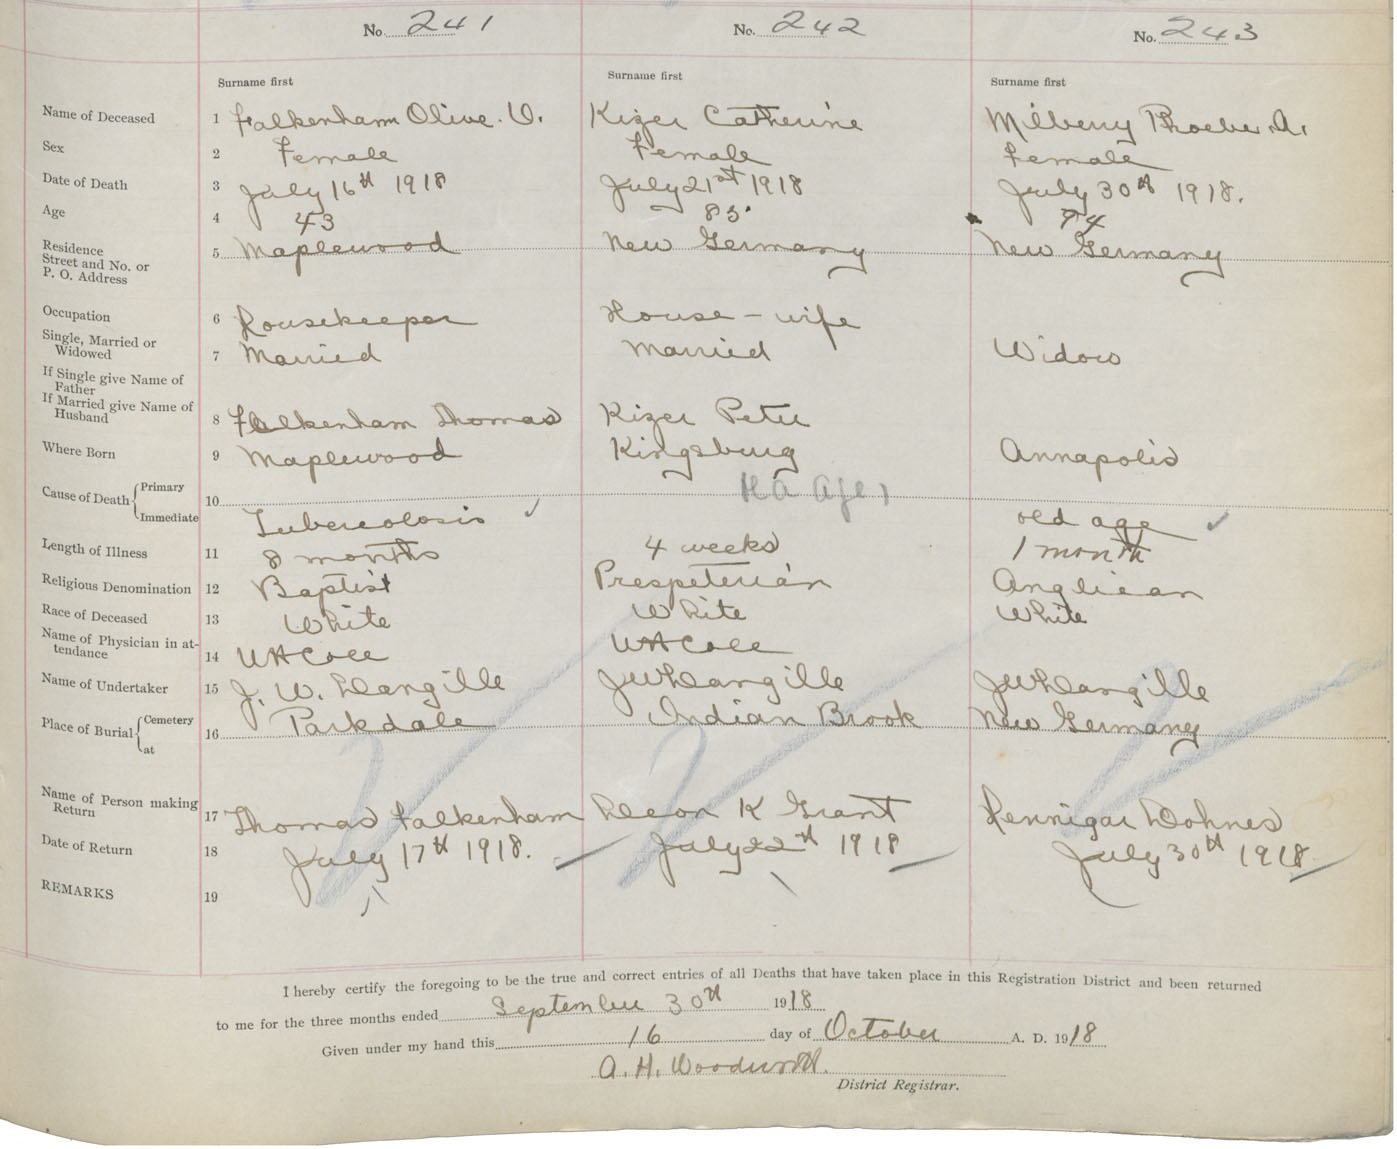 No. 241 No. 242 No. 243
Surname first Surname first Surname first
Name of Deceased 1 Falkenham Olive. V. Kizer Catherine Milberry Phoebe. A.
Sex 2 Female Female Female
Date of Death 3 July 16th 1918 July 21st 1918 July 30th 1918.
Age 4 43 85 74
Residence
Street and No. or
P. O. Address 5 Maplewood New Germany New Germany
Occupation 6 Housekeeper House-wife
Single, Married or
Widowed 7 Married Married Widow
If Single give Name of
Father
If Married give Name of
Husband 8 Falkenham Thomas Kizer Peter
Where Born 9 Maplewood Kingsburg Annapolis
Cause of Death { Primary
Immediate 10 Tubercolosis Age old age
Length of Illness 11 8 months 4 weeks 1 month
Religious Denomination 12 Baptist Prespeterian Anglican
Race of Deceased 13 White White White
Name of Physician in at-
tendance 14 WHCole WHCole
Name of Undertaker 15 J. W. Langille JWLangille JWLangille
Place of Burial { Cemetery
at 16 Parkdale Indian Brook New Germany
Name of Person making
Return 17 Thomas Falkenham Leon K Grant Hennigar Lohnes
Date of Return 18 July 17th 1918. July 22th 1918 July 30th 1918
REMARKS 19
I hereby certify the foregoing to be the true and correct entries of all Deaths that have taken place in this Registration District and been returned
to me for the three months ended September 30th 1918
Given under my hand this 16 day of October A. D. 1918
A. H. Woodworth.
District Registrar.